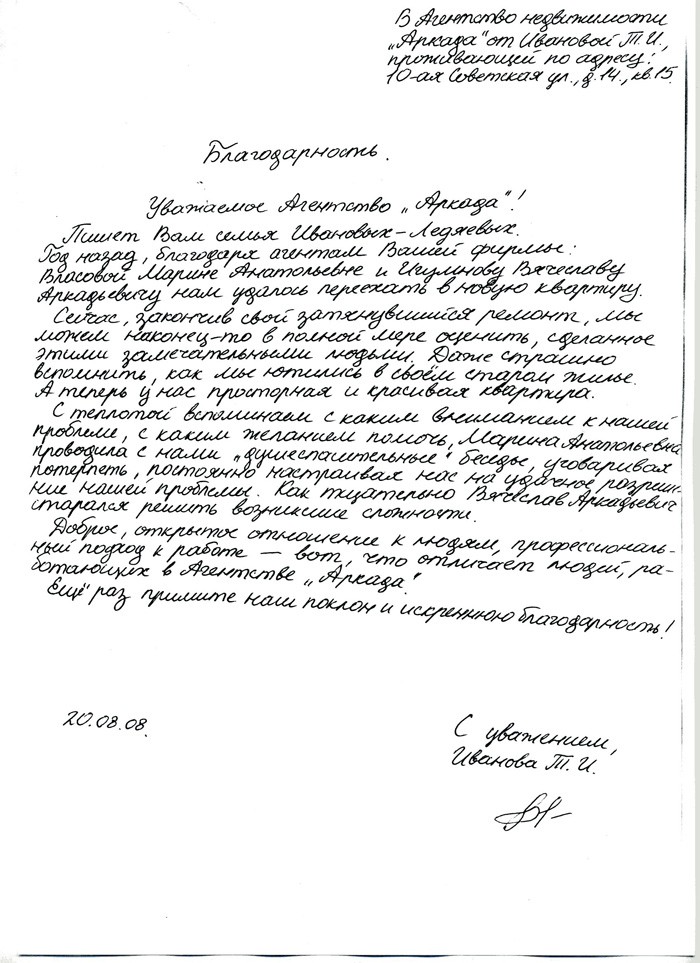 В Агентство недвижимости
„Аркада" от Ивановой Т.И.,
проживающей по адресу:
10-ая Советская ул., д.14., кв.15.
Благодарность.
Уважаемое Агентство „Аркада"!
Пишет Вам семья Ивановых-Ледяевых.
Год назад, благодаря агентам Вашей фирмы:
Власовой Марине Анатольевне и Вячеславу
Аркадьевичу нам удалось переехать в новую квартиру.
Сейчас, закончив свой затянувшийся ремонт, мы
можем наконец-то в полной мере оценить, сделанное
этими замечательными людьми. Даже страшно
вспомнить, как мы ютились в своём старом жилье.
А теперь у нас просторная и красивая квартира.
С теплотой вспоминаем с каким вниманием к нашей
проблеме, с каким желанием помочь, Марина Анатольевна
проводила с нами „душеспасительные" беседы, уговаривая
потерпеть, постоянно настраивая нас на удачное разреше-
ние нашей проблемы. Как тщательно Вячеслав Аркадьевич
старался решить возникшие сложности.
Доброе, открытое отношение к людям, профессиональ-
ный подход к работе — вот, что отличает людей, ра-
ботающих в Агентстве „Аркада".
Ещё раз примите наш поклон и искреннюю благодарность!
20.08.08.
С уважением,
Иванова Т.И.